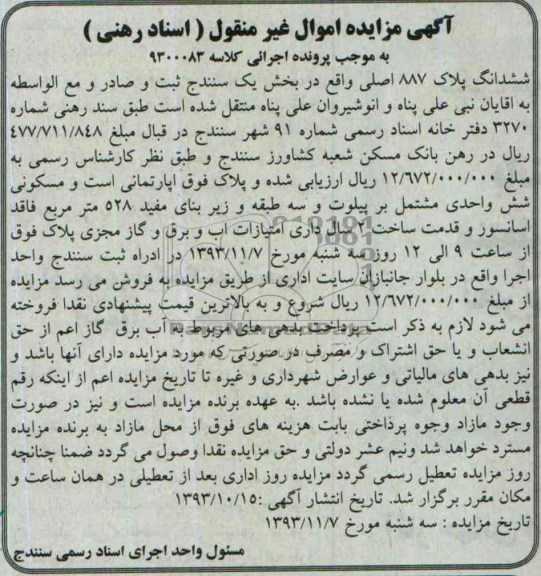 آگهی مزایده اموال غیر منقول ( اسناد رهنی )
به موجب پرونده اجرائی کلاسه ۹۳۰۰۰۸۳
ششدانگ پلاک ۸۸۷ اصلی واقع در بخش یک سنندج ثبت و صادر و مع الواسطه
به اقایان نبی علی پناه و انوشیروان علی پناه منتقل شده است طبق سند رهنی شماره
۳۲۷۰ دفتر خانه اسناد رسمی شماره ۹۱ شهر سنندج در قبال مبلغ ۴۷۷/۷۱۱/۸۴۸
ریال در رهن بانک مسکن شعبه کشاورز سنندج و طبق نظر کارشناس رسمی به
مبلغ ۱۲/۶۷۲/۰۰۰/۰۰۰ ریال ارزیابی شده و پلاک فوق اپارتمانی است و مسکونی
شش واحدی مشتمل بر پیلوت و سه طبقه و زیر بنای مفید ۵۲۸ متر مربع فاقد
اسانسور و قدمت ساخت ۲ سال داری امتیازات اب و برق و گاز مجزی پلاک فوق
از ساعت ۹ الی ۱۲ روز سه شنبه مورخ ۱۳۹۳/۱۱/۷ در ادراه ثبت سنندج واحد
اجرا واقع در بلوار جانبازان سایت اداری از طریق مزایده به فروش می رسد مزایده
از مبلغ ۱۲/۶۷۲/۰۰۰/۰۰۰ ریال شروع و به بالاترین قیمت پیشنهادی نقدا فروخته
می شود لازم به ذکر است پرداخت بدهی های مربوط به آب برق گاز اعم از حق
انشعاب و یا حق اشتراک و مصرف در صورتی که مورد مزایده دارای آنها باشد و
نیز بدهی های مالیاتی و عوارض شهرداری و غیره تا تاریخ مزایده اعم از اینکه رقم
قطعی آن معلوم شده یا نشده باشد .به عهده برنده مزایده است و نیز در صورت
وجود مازاد وجوه پرداختی بابت هزینه های فوق از محل مازاد به برنده مزایده
مسترد خواهد شد ونیم عشر دولتی و حق مزایده نقدا وصول می گردد ضمنا چنانچه
روز مزایده تعطیل رسمی گردد مزایده روز اداری بعد از تعطیلی در همان ساعت و
مکان مقرر برگزار شد. تاریخ انتشار آگهی :۱۳۹۳/۱۰/۱۵
تاریخ مزایده : سه شنبه مورخ ۱۳۹۳/۱۱/۷
مسئول واحد اجرای اسناد رسمی سنندج